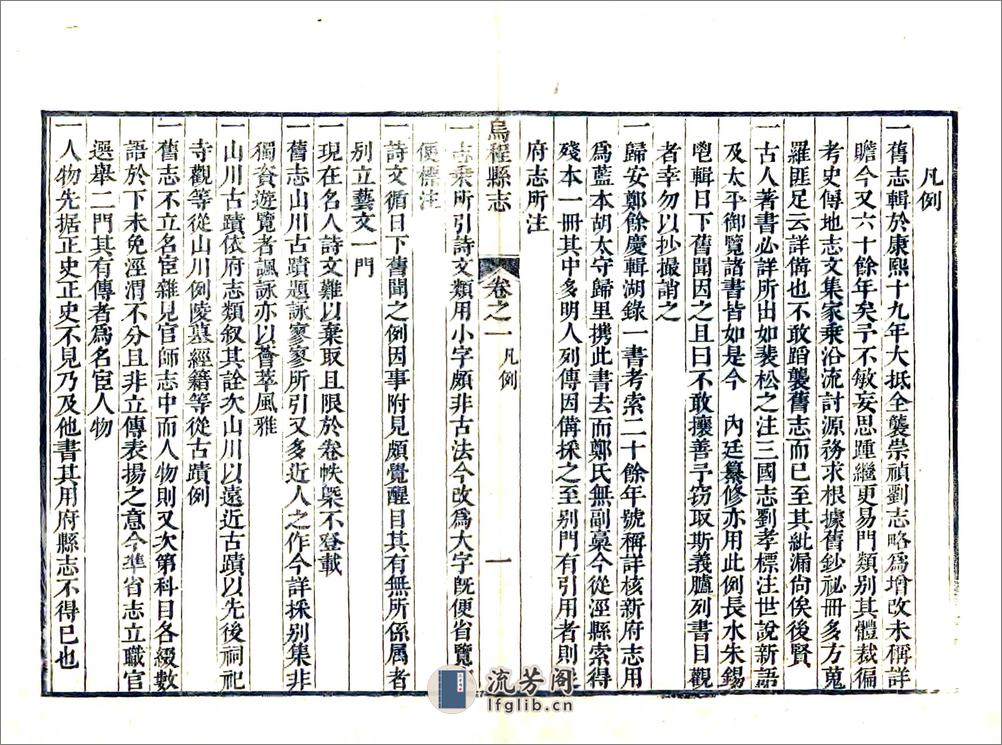 凡例
一舊志輯於康熙十九年大抵全襲崇禎劉志略爲增改未稱詳
贍今又六十餘年矣予不敏妄思踵繼更易門類别其體裁徧
考史傳地志文集家乘沿流討源務求根據舊鈔祕冊多方蒐
羅匪足云詳備也不敢蹈襲舊志而已至其紕漏尙俟後賢
一古人著書必詳所出如裴松之注三國志劉孝標注世說新語
及太平御覽諸書皆如是今　內廷纂修亦用此例長水朱錫
鬯輯日下舊聞因之且曰不敢攘善予窃取斯義臚列書目觀
者幸勿以抄撮誚之
一歸安鄭餘慶輯湖錄一書考索二十餘年號稱詳核新府志用
爲藍本胡太守歸里攜此書去而鄭氏無副稾今從涇縣索得
殘本一冊其中多明人列傳因備採之至别門有引用者則
府志所注
烏程縣志
卷之一　凡例
一
一志乘所引詩文類用小字頗非古法今改爲大字旣便省覽
便標注
一詩文循日下舊聞之例因事附見頗覺醒目其有無所係属者
别立藝文一門
一現在名人詩文難以棄取且限於卷帙槩不登載
一舊志山川古蹟題詠寥寥所引又多近人之作今詳採别集非
獨資遊覽者諷詠亦以薈萃風雅
一山川古蹟依府志類叙其詮次山川以遠近古蹟以先後祠祀
寺觀等從山川例陵墓經籍等從古蹟例
一舊志不立名宦雜見官師志中而人物則又次第科目各綴數
語於下未免涇渭不分且非立傳表揚之意今準省志立職官
選舉二門其有傳者爲名宦人物
一人物先据正史正史不見乃及他書其用府縣志不得已也
流芳阁
lfglib.cn